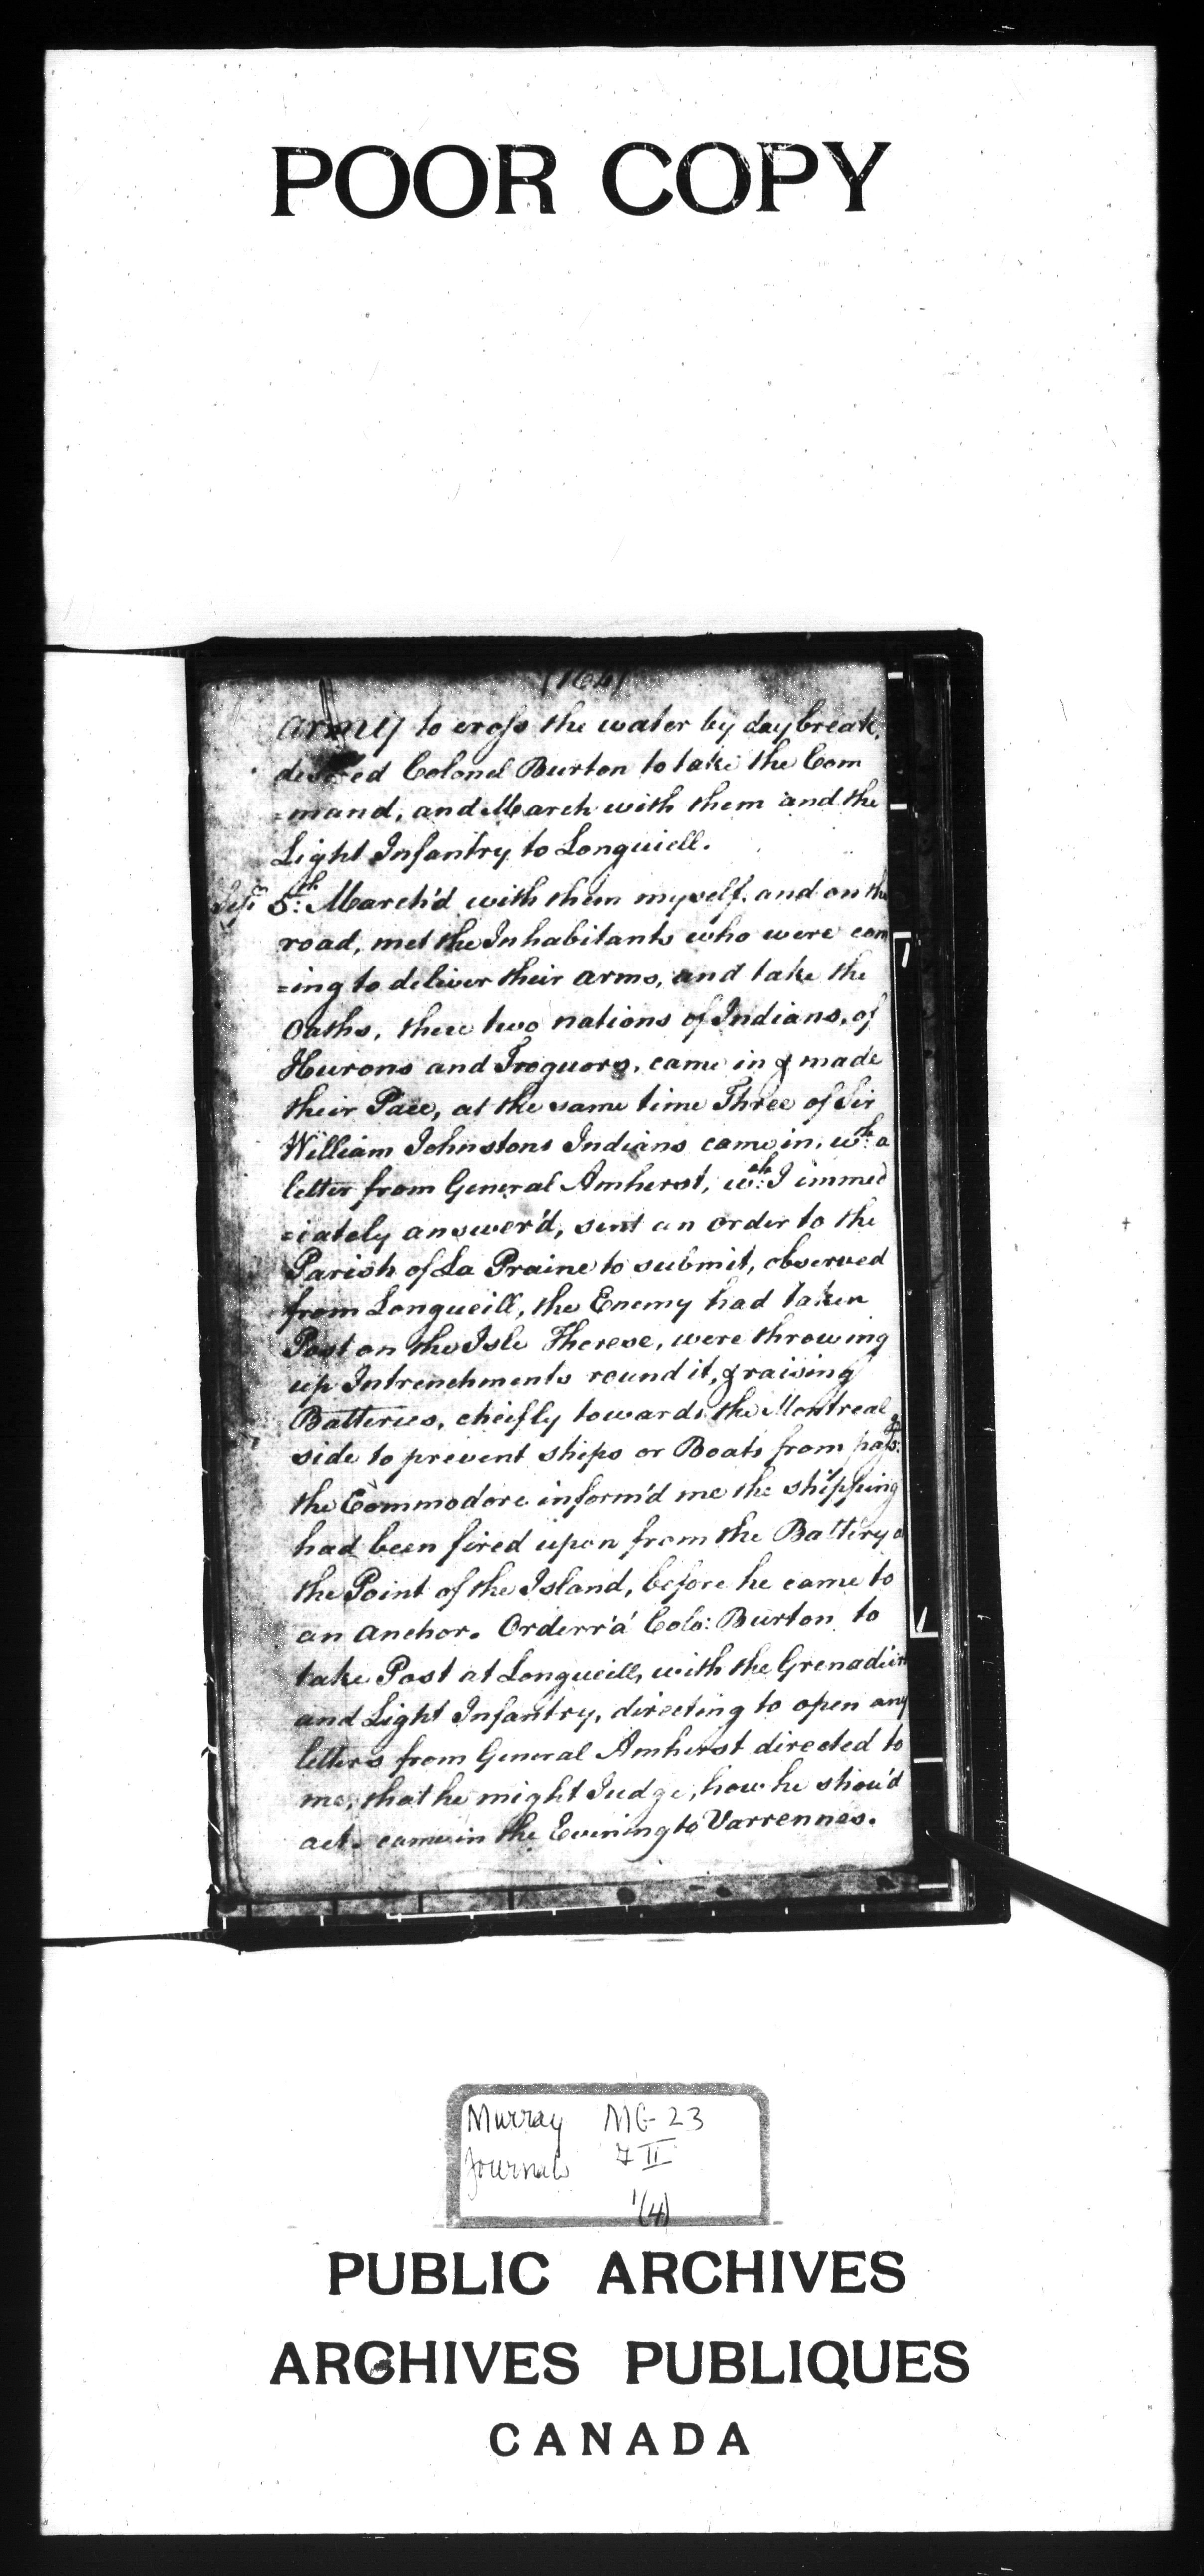 POOR COPY
(164)
army to cross the water by day break,
desired Colonel Burton to take the Com
=mand, and March with them and the
Light Infantry to Longuiell.
Sepr 5th: March'd with them myself, and on the
road, met the Inhabitants who were com
=ing to deliver their arms, and take the
Oaths, there two nations of Indians, of
Hurons and Iroquors, came in & made
their Pace, at the same time Three of Sir
William Johnstons Indians came in, wth: a
letter from General Amherst, wch: I immed
=iately answer'd, sent an order to the
Parish of La Praine to submit, observed
from Longueill, the Enemy had taken
Post on the Isle Therese, were throwing
up Intrenchments round it, & raising
Batteries, cheifly towards the Montreal
side to prevent ships or Boats from passg:
the Commodore inform'd me the shipping
had been fired upon from the Battery o
the Point of the Island, before he came to
an anchor. Orderr'd Colo: Burton to
take Post at Longueill, with the Grenadiers
and Light Infantry, directing to open any
letters from General Amherst directed to
me, that he might Judge, how he shou'd
act. came in the Evening to Varrennes.
Murray MG 23
Journals 7 II
1(4)
PUBLIC ARCHIVES
ARCHIVES PUBLIQUES
CANADA